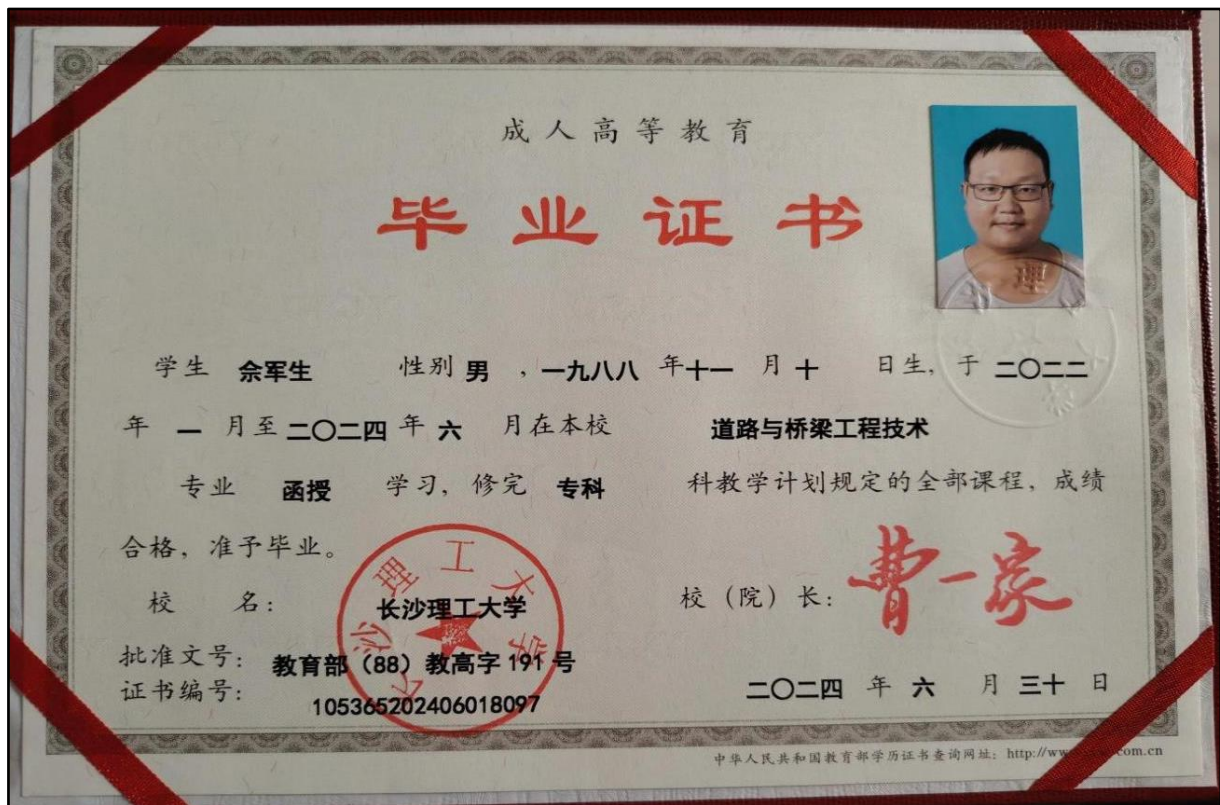 成人高等教育
毕业证书
学生 佘军生 性别 男 ，一九八八 年十一 月 十 日生，于 二〇二二
年 一 月至 二〇二四 年 六 月在本校 道路与桥梁工程技术
专业 函授 学习，修完 专科 科教学计划规定的全部课程，成绩
合格，准予毕业。
校 名： 长沙理工大学
校（院）长： 曹一家
批准文号： 教育部（88）教高字 191 号
证书编号： 105365202406018097
二〇二四 年 六 月 三十 日
长沙理工大学
理工
中华人民共和国教育部学历证书查询网址：http://ww
com.cn